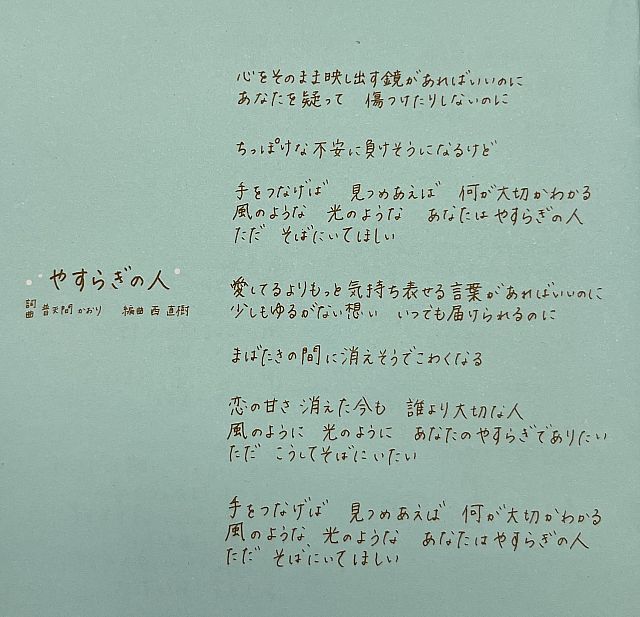 やすらぎの人
詞 曲 普天間 かおり 編曲 西 直樹
心をそのまま映し出す鏡があればいいのに
あなたを疑って 傷つけたりしないのに
ちっぽけな不安に負けそうになるけど
手をつなげば 見つめあえば 何が大切かわかる
風のような 光のような あなたは やすらぎの人
ただ そばにいてほしい
愛してるよりもっと 気持ち表せる言葉があればいいのに
少しもゆるがない想い いつでも届けられるのに
まばたきの間に消えそうでこわくなる
恋の甘さ 消えた今も 誰より大切な人
風のように 光のように あなたのやすらぎでありたい
ただ こうしてそばにいたい
手をつなげば 見つめあえば 何が大切かわかる
風のような 光のような あなたはやすらぎの人
ただ そばにいてほしい